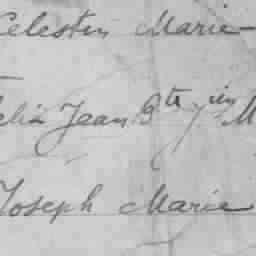 Celestin Marie
elia Jean Bte
Joseph Marie